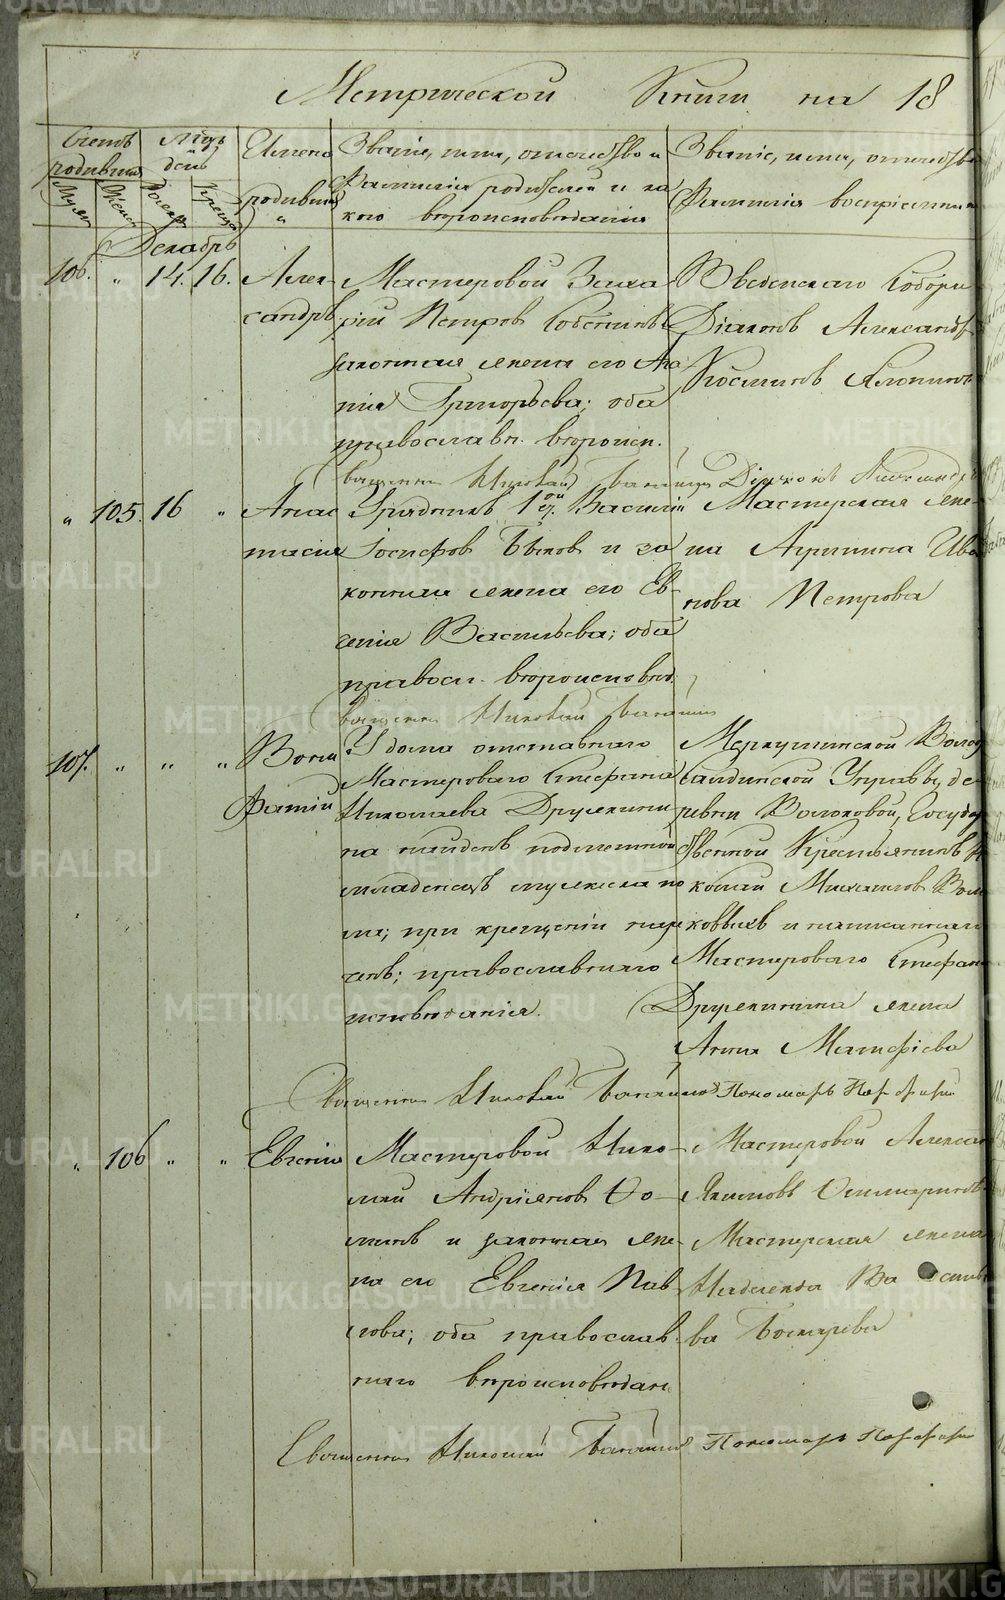 Метрической Книги на 18
Счетъ родившихся
Мѣсяцъ и день
Имена родившихся
Званіе, имя, отчество и фамилія родителей и какого вѣроисповѣданія
Званіе, имя, отчество
фамилія воспріемник
Мужск.
Женск.
Рожден.
Крещен.
Декабрь
106. " 14. 16.
Алек-
сандръ
Мастеровой Заха
рій Петровъ
законная жена его Ан
на Григорьева; оба
православн. вѣроисп.
Введенскаго Собора
Діаконъ Александръ
Космин
Священникъ Николай
Діаконъ Александръ
" 105. 16 "
Анас
тасія
Урядникъ 1ой ст. Василій
Іосифовъ Быковъ и за
конная жена его Ев-
генія Васильева; оба
правосл. вѣроисповѣд.
Мастерская же-
на Агрипина Ива
нова Петрова
Священникъ Николай
107. " " "
Вони
фатій
У дома отставнаго
Мастероваго Стефана
Николаева Дружинина
найденъ подметной
младенецъ мужеска по
ла; при крещеніи наре
ченъ; православнаго
исповѣданія.
Меркушинской Волос
Салдинской Управы, де-
ревни Волоковой, Государ
ственной Крестьянинъ Н
колай Михайловъ Воло
ковыхъ и написаннаго
Мастероваго Стефана
Дружинина жена
Анна Матфіева
Священникъ Николай Пономарь Порфирій
" 106 " "
Евгенія
Мастеровой Нико-
лай Андріяновъ Фо-
минъ и законная же-
на его Евгенія Пав
лова; оба православ-
наго вѣроисповѣдан.
Мастеровой Алексан
Якимовъ
Мастерская жена
Надежда Васильe
ва Бочкарева
Священникъ Николай Пономарь Порфирій
METRIKI.GASO-URAL.RU